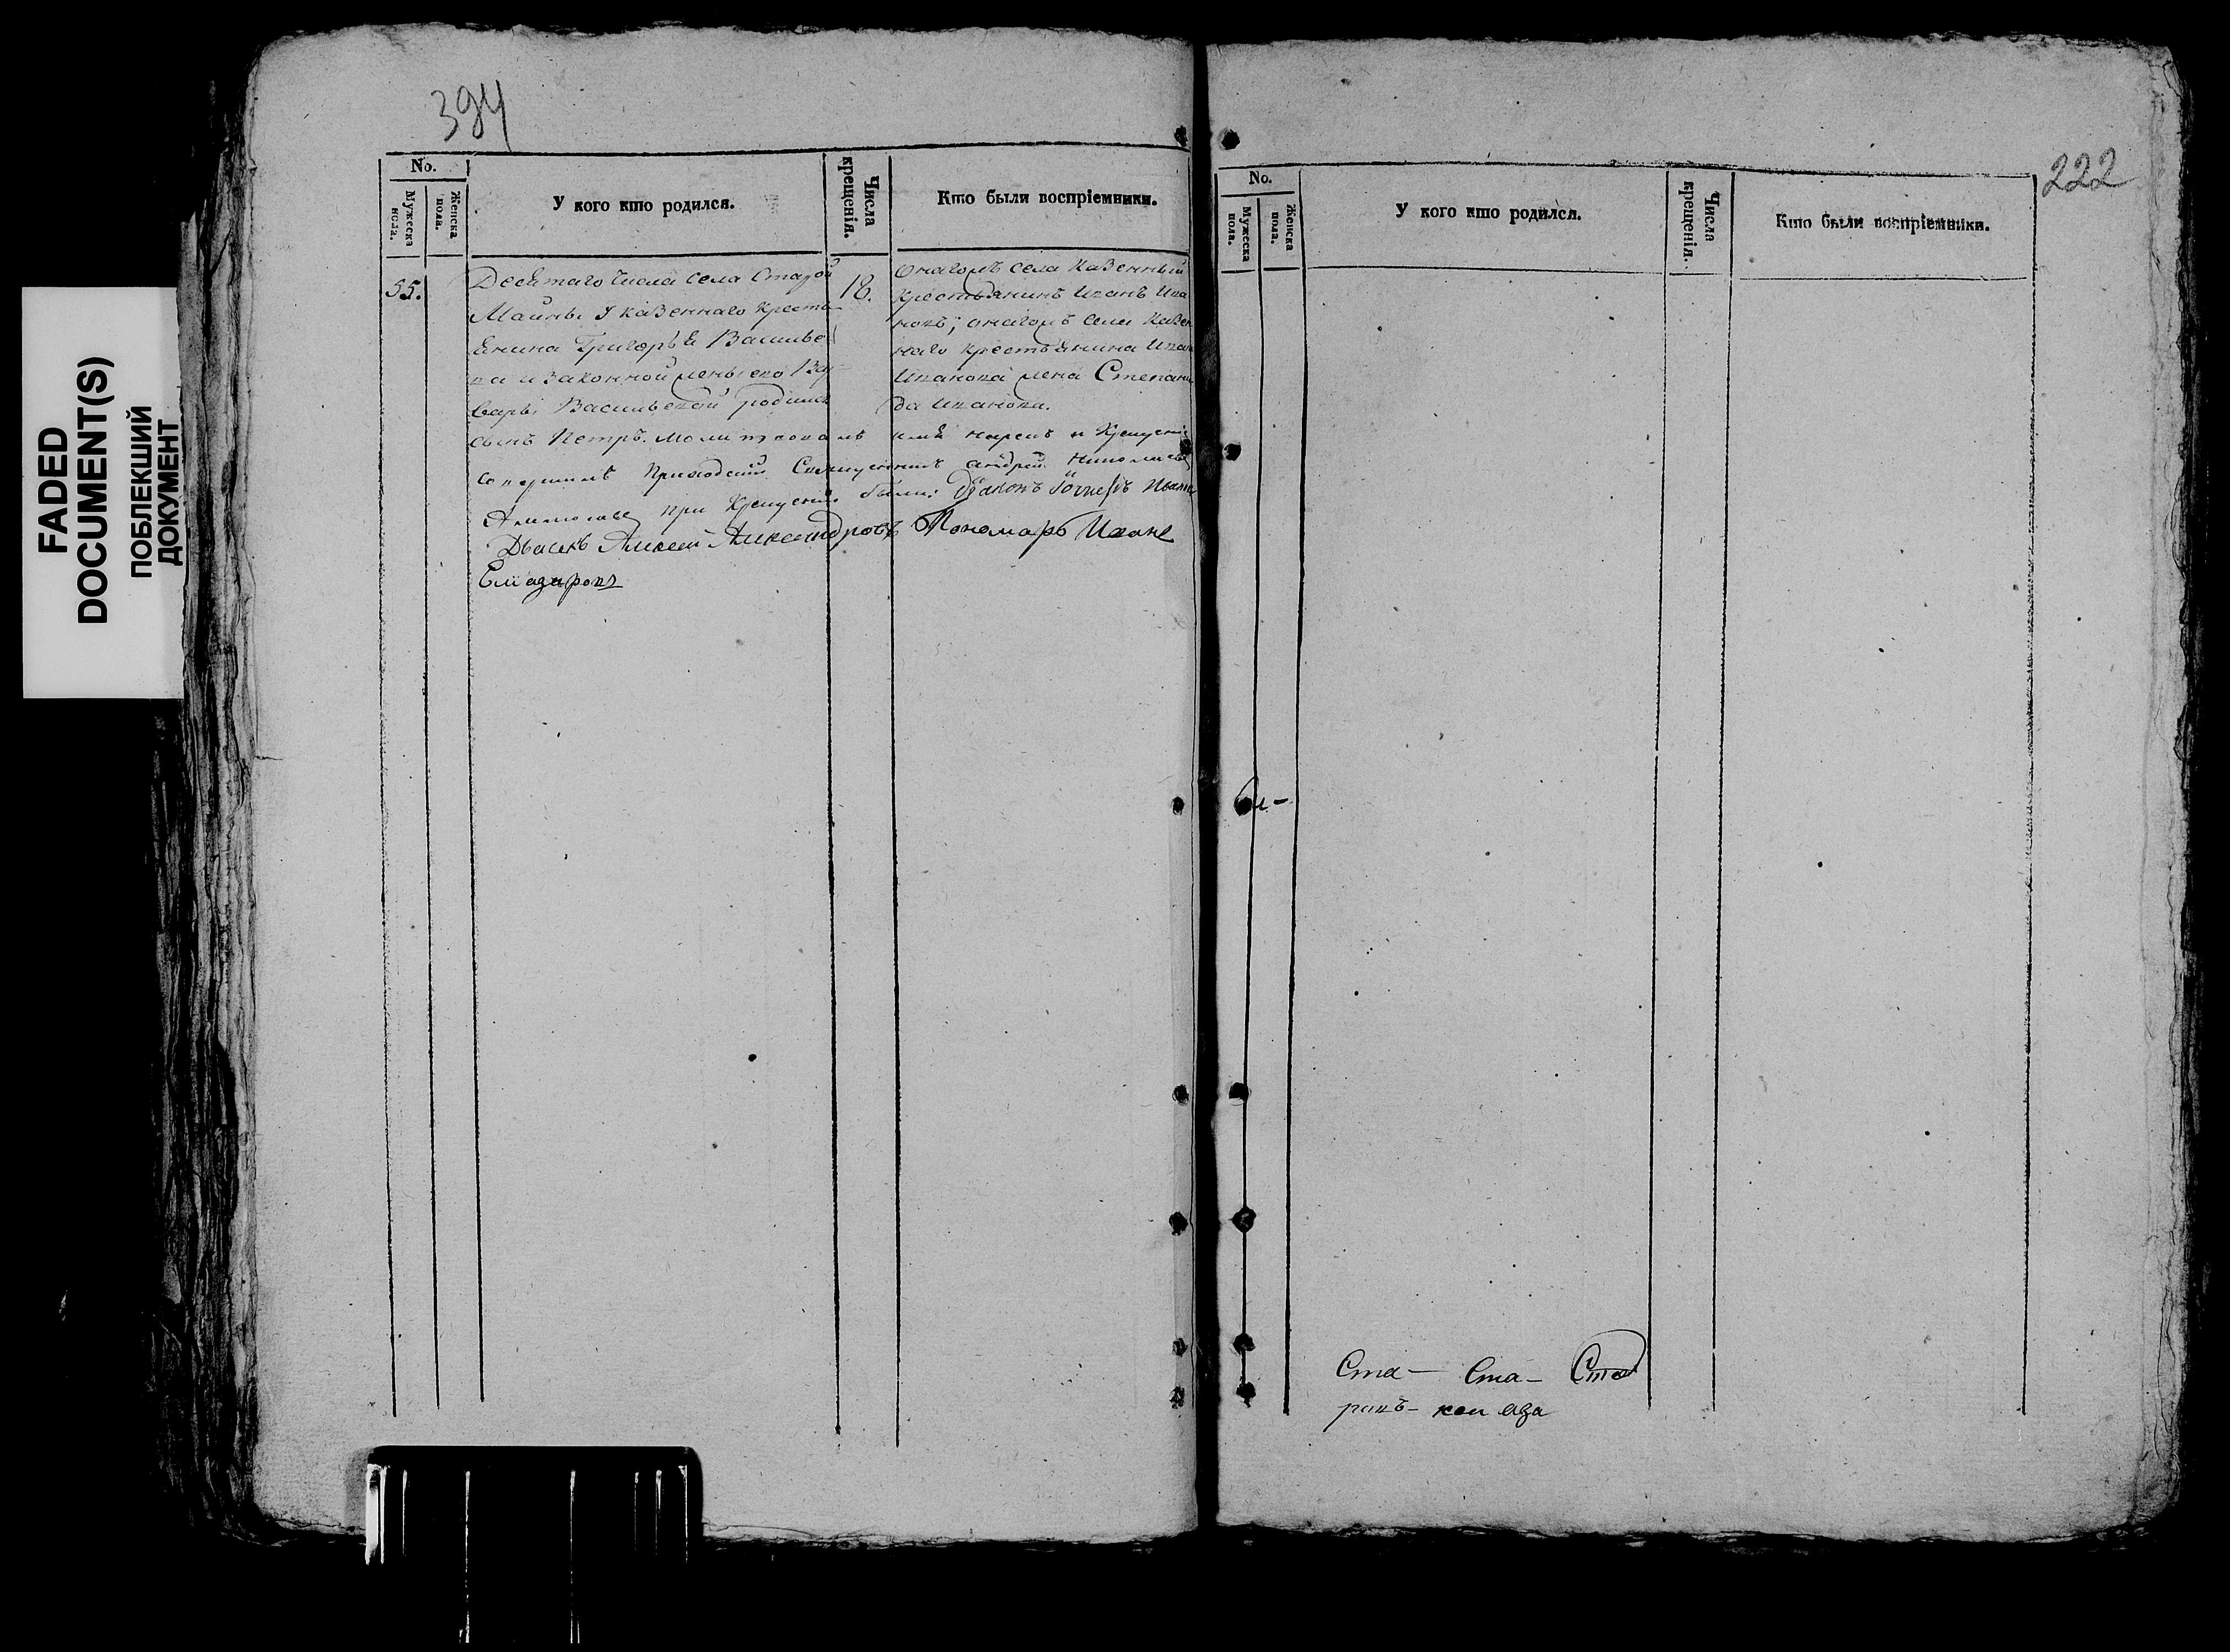 FADED
DOCUMENT(S)
ПОБЛЕКШИЙ
ДОКУМЕНТ
394
No.
Мужеска пола.
Женска пола.
У кого кто родился.
Числа крещенія.
Кто были воспріемники.
55.
Десятаго числа села Старой
Майны у казеннаго кресть-
янина Григорья Василье
ва и законной жены его Вар-
вары Васильевой родился
сынъ Петръ. молитвовалъ имя нарекъ и крещеніе
совершилъ приходский Священникъ андрей
при крещеніи были: Діаконъ Иванъ
Дьячекъ Алексей Александровъ Пономарь Иванъ
18.
онагожъ села казенный
крестьянинъ Иванъ Ива
новъ; онагожъ села казен
наго крестьянина Иван
Иванова жена Степани
да Иванова.
222
No.
Мужеска пола.
Женска пола.
У кого кто родился.
Числа крещенія.
Кто были воспріемники.
Ста- Ста- Ста